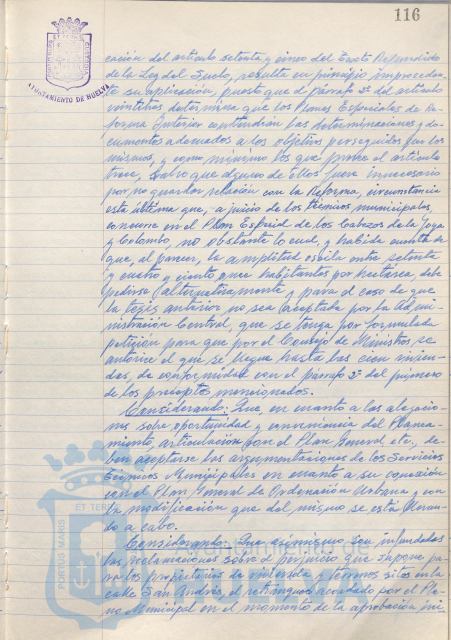 116
AYUNTAMIENTO DE HUELVA
cación del artículo setenta y cinco del Texto Refundido
de la Ley del Suelo, resulta en principio improceden-
te su aplicación, puesto que el párrafo 3º del artículo
veintitres determina que los Planes Especiales de Re-
forma Interior contendrán las determinaciones y do-
cumentos adecuados a los objetivos perseguidos por los
mismos, y como mínimo los que prevee el artículo
trece, salvo que alguno de ellos fuere innecesario
por no guardar relación con la Reforma, circunstancia
esta última que, a juicio de los técnicos municipales
concurre en el Plan Especial de los Cabezos de la Joya
y Colombo, no obstante lo cual, y habida cuenta de
que, al parecer, la amplitud oscila entre setenta
y cuatro y ciento once habitantes por hectárea, debe
pedirse alternativamente y para el caso de que
la tesis anterior no sea aceptada por la Admi-
nistración Central, que se tenga por formulada
petición para que por el Consejo de Ministros se
autorice el que se llegue hasta las cien vivien-
das, de conformidad con el párrafo 2º del primero
de los preceptos mencionados.
Considerando: Que, en cuanto a las alegacio-
nes sobre oportunidad y conveniencia del Planea-
miento, articulación con el Plan General etc., de-
ben aceptarse las argumentaciones de los Servicios
Técnicos Municipales en cuanto a su conexión
con el Plan General de Ordenación Urbana y con
la modificación que del mismo se está llevan-
do a cabo.
Considerando: Que asimismo son infundadas
las reclamaciones sobre el perjuicio que supone pa-
ra los propietarios de viviendas y terrenos sitos en la
calle San Andrés, el retranqueo acordado por el Ple-
no Municipal en el momento de la aprobación ini
PORTUS MARIS ET TERRE
Ayuntamiento de